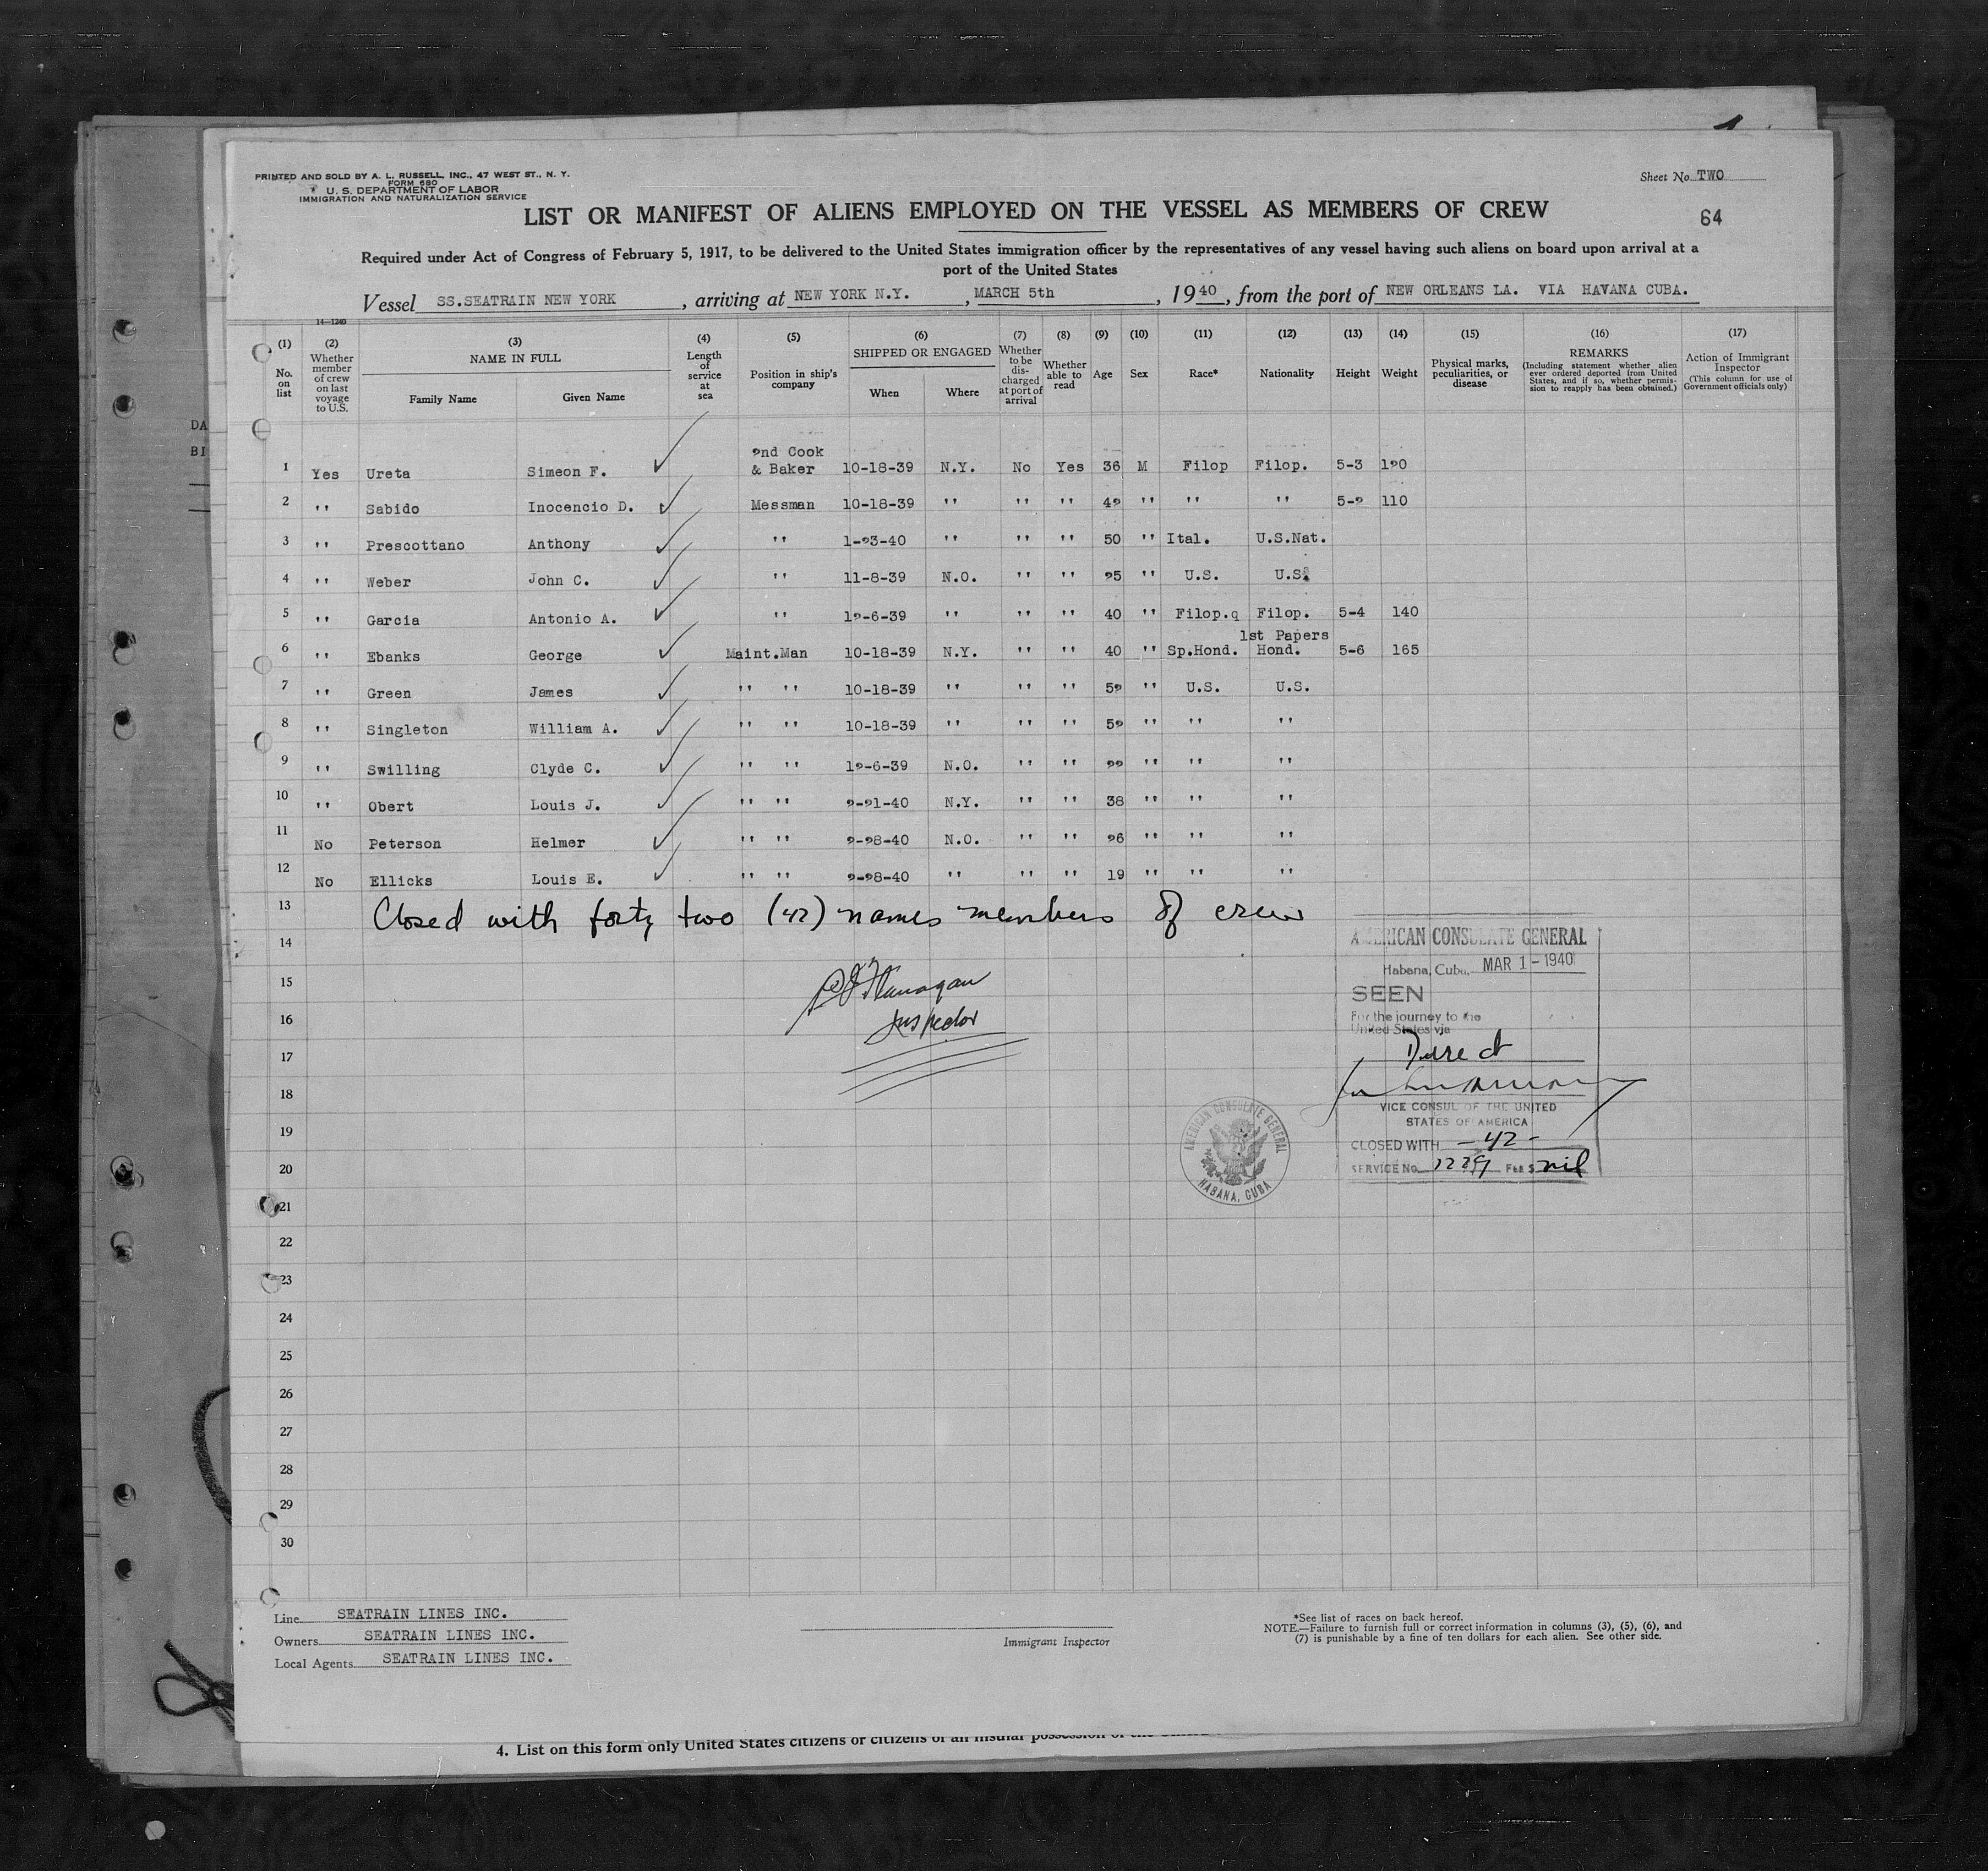 PRINTED AND SOLD BY A. L. RUSSELL, INC., 47 WEST ST., N. Y.
FORM 680
U. S. DEPARTMENT OF LABOR
IMMIGRATION AND NATURALIZATION SERVICE
Sheet No. TWO
64
LIST OR MANIFEST OF ALIENS EMPLOYED ON THE VESSEL AS MEMBERS OF CREW
Required under Act of Congress of February 5, 1917, to be delivered to the United States immigration officer by the representatives of any vessel having such aliens on board upon arrival at a
port of the United States
Vessel SS.SEATRAIN NEW YORK, arriving at NEW YORK N.Y., MARCH 5th, 1940, from the port of NEW ORLEANS LA. VIA HAVANA CUBA.
14—1240
(1) No. on list
(2) Whether member of crew on last voyage to U.S.
(3) NAME IN FULL Family Name Given Name
(4) Length of service at sea
(5) Position in ship's company
(6) SHIPPED OR ENGAGED When Where
(7) Whether to be discharged at port of arrival
(8) Whether able to read
(9) Age
(10) Sex
(11) Race*
(12) Nationality
(13) Height
(14) Weight
(15) Physical marks, peculiarities, or disease
(16) REMARKS (Including statement whether alien ever ordered deported from United States, and if so, whether permission to reapply has been obtained.)
(17) Action of Immigrant Inspector (This column for use of Government officials only)
1 Yes Ureta Simeon F. 2nd Cook & Baker 10-18-39 N.Y. No Yes 36 M Filop Filop. 5-3 120
2 '' Sabido Inocencio D. Messman 10-18-39 '' '' '' 42 '' '' '' 5-2 110
3 '' Prescottano Anthony '' 1-23-40 '' '' '' 50 '' Ital. U.S.Nat.
4 '' Weber John C. '' 11-8-39 N.O. '' '' 25 '' U.S. U.S.
5 '' Garcia Antonio A. '' 12-6-39 '' '' '' 40 '' Filop.q Filop. 5-4 140
6 '' Ebanks George Maint.Man 10-18-39 N.Y. '' '' 40 '' Sp.Hond. 1st Papers Hond. 5-6 165
7 '' Green James '' '' 10-18-39 '' '' '' 52 '' U.S. U.S.
8 '' Singleton William A. '' '' 10-18-39 '' '' '' 52 '' '' ''
9 '' Swilling Clyde C. '' '' 12-6-39 N.O. '' '' 22 '' '' ''
10 '' Obert Louis J. '' '' 2-21-40 N.Y. '' '' 38 '' '' ''
11 No Peterson Helmer '' '' 2-28-40 N.O. '' '' 26 '' '' ''
12 No Ellicks Louis E. '' '' 2-28-40 '' '' '' 19 '' '' ''
13 Closed with forty two (42) names members of crew
14
15 Flanagan
16 Inspector
17
18
19
20
21
22
23
24
25
26
27
28
29
30
AMERICAN CONSULATE GENERAL
Habana, Cuba, MAR 1 - 1940
SEEN
For the journey to the
United States via
Direct
VICE CONSUL OF THE UNITED
STATES OF AMERICA
CLOSED WITH - 42 -
SERVICE No. 1229 Fee $ nil
AMERICAN CONSULATE GENERAL
HABANA, CUBA
Line SEATRAIN LINES INC.
Owners SEATRAIN LINES INC.
Local Agents SEATRAIN LINES INC.
Immigrant Inspector
*See list of races on back hereof.
NOTE.—Failure to furnish full or correct information in columns (3), (5), (6), and
(7) is punishable by a fine of ten dollars for each alien. See other side.
DA
BI
4. List on this form only United States citizens or citizens of an insular possession of the